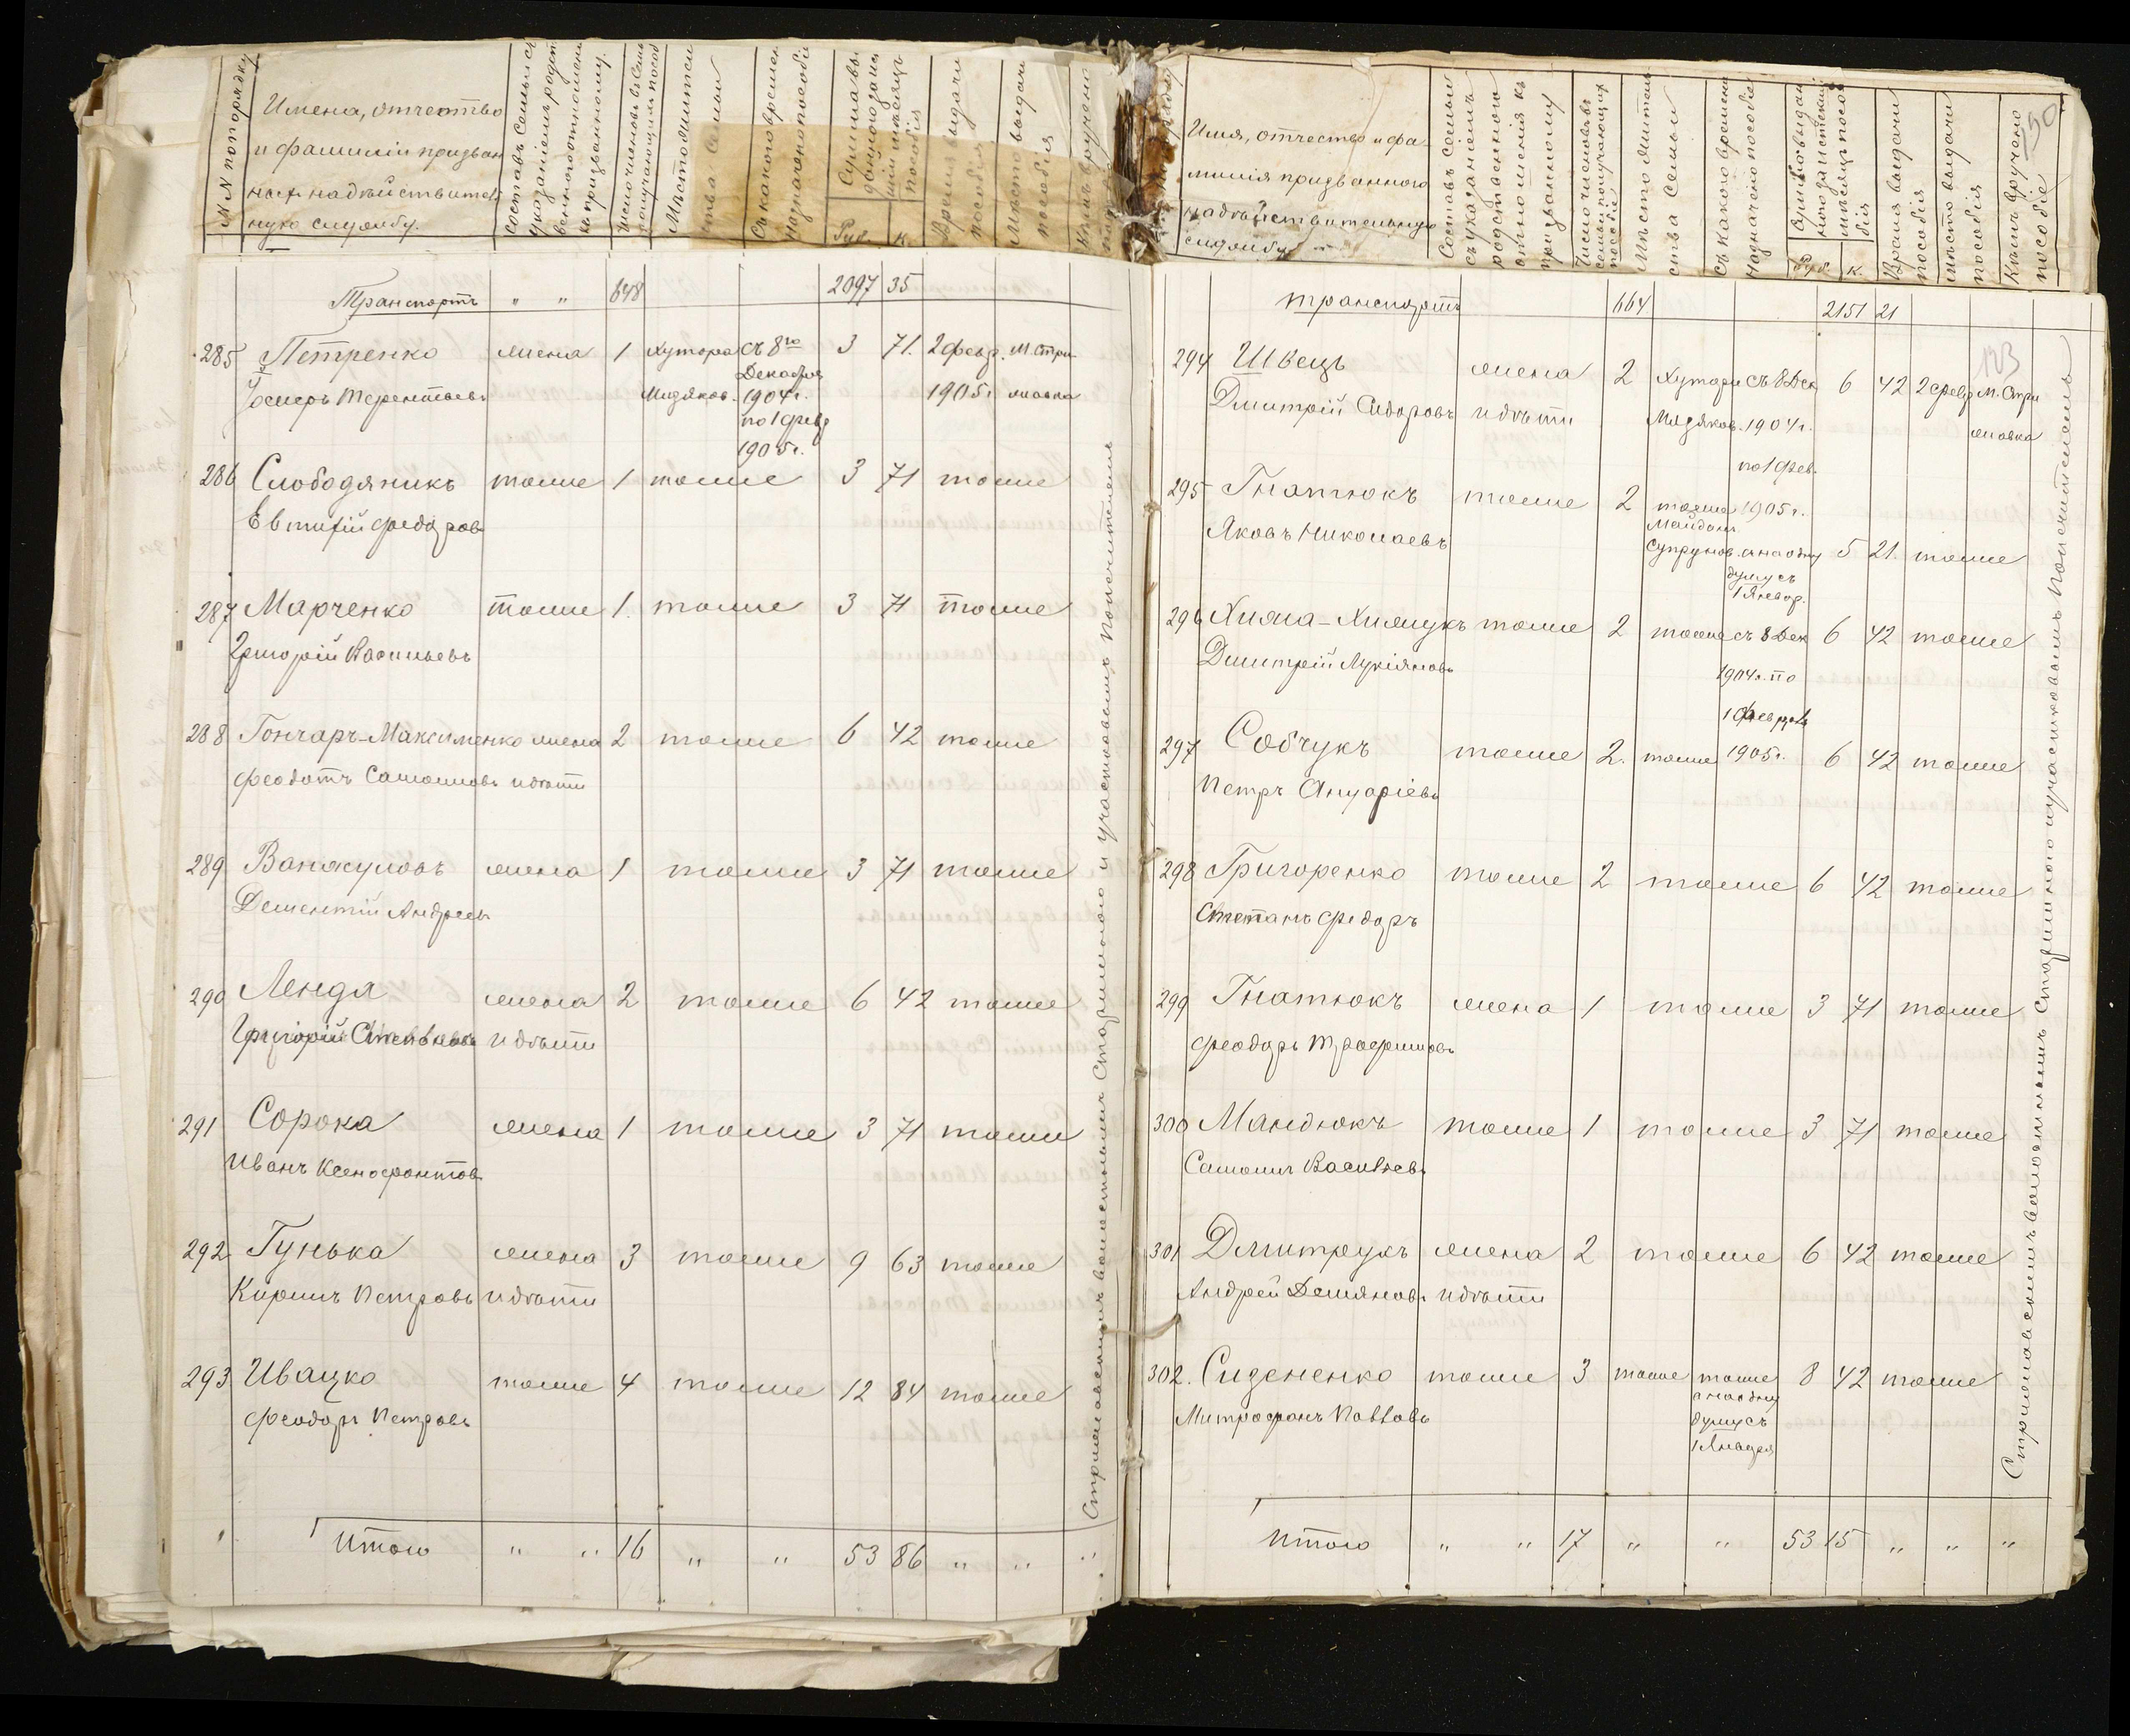 № № по порядку
Имена, отчество
и фамиліи призван
ныхъ на действитель
ную службу.
Составъ Семьи съ
указаніемъ родст
веннаго отношенія
къ призванному.
Число членовъ въ Семь
получающихъ пособ
Местожитель
ства Семьи
Съ какого времен
назначено пособіе
Сумма выдан
даннаго за истек
шій месяцъ
пособія
Руб. К.
Время выдачи
пособія
Место выдачи
пособія
Кемъ вручено
Транспортъ " " 648 2097 35
285 Петренко жена 1 Хутора Съ 8го 3 71. 2 февр. М. Стри-
Декабря
Іосифъ Терентьевъ Мидяков. 1904 г. 1905 г. жавка
по 1 февр
1905 г.
286 Слободяникъ тоже 1 тоже 3 71 тоже
Евтихій Федоров
287 Марченко тоже 1. тоже 3 71 тоже
Григорій Васильевъ
288 Гончаръ-Максименко жена 2 тоже 6 42 тоже
Феодотъ Самоиловъ и дети
289 Ванжуловъ жена 1 тоже 3 71 тоже
Дементій Андреев
290 Ленда жена 2 тоже 6 42 тоже
Григорій Степановъ и дети
291 Сорока жена 1 тоже 3 71 тоже
Иванъ Ксенофонтов
292 Гунька жена 3 тоже 9 63 тоже
Кирилъ Петровъ и дети
293 Ивацко тоже 4 тоже 12 84 тоже
Феодоръ Петровъ
Итого " " 16 " " 53 86 " " "
Стрижавскимъ волостнымъ Старшиною и участковымъ Попечителемъ
Имя, отчество и фа-
милія призваннаго
на действительную
службу
Составъ семьи
съ указаніемъ
родственнаго
отношенія къ
призванному
Число членовъ въ
семьи получающихъ
пособіе
Местожитель
ства Семьи
Съ какого времени
назначено пособіе
Сумма выдан
наго за истекшій
месяцъ пособ
бія
Руб. К.
Время выдачи
пособія
место выдачи
пособія
Кемъ вручено
пособіе
150
транспортъ 664. 2151 21
123
294 Швецъ жена 2 Хутора съ 8 Дек 6 42 2 февр М. Стри
Дмитрій Сидоровъ и дети Мидяков. 1904 г. жавка
по 1 фев.
295 Гнатюкъ тоже 2 тоже 1905 г.
Майдана
Яковъ Николаевъ Супрунов. а на одну 5 21. тоже
душу съ
1 Январ.
296 Хижа-Хижукъ тоже 2 тоже съ 8 Дек 6 42 тоже
Дмитрій Лукіяновъ 1904 г. по
1 февраля
297 Собчукъ тоже 2. тоже 1905 г. 6 42 тоже
Петръ Ануаріевъ
298 Григоренко тоже 2 тоже 6 42 тоже
Степанъ Федоръ
299 Гнатюкъ жена 1 тоже 3 71 тоже
Феодоръ Трофимовъ
300 Мандюкъ тоже 1 тоже 3 71 тоже
Самоилъ Васильевъ
301 Дмитрукъ жена 2 тоже 6 42 тоже
Андрей Демяновъ и дети
302. Сидененко тоже 3 тоже тоже 8 42 тоже
а на одну
Митрофанъ Павловъ душу съ
1 Января
Итого " " 17 " " 53 15 " " "
Стрижавскимъ волостнымъ Старшиною и участковымъ Попечителемъ